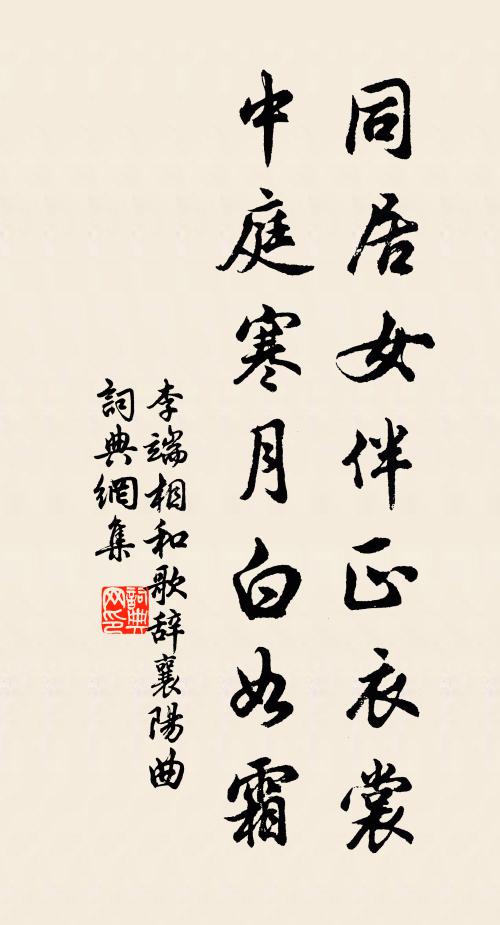 同居女伴正衣裳
中庭寒月白如霜
李端相和歌辞襄陽曲
詞典網集
詞典
网印